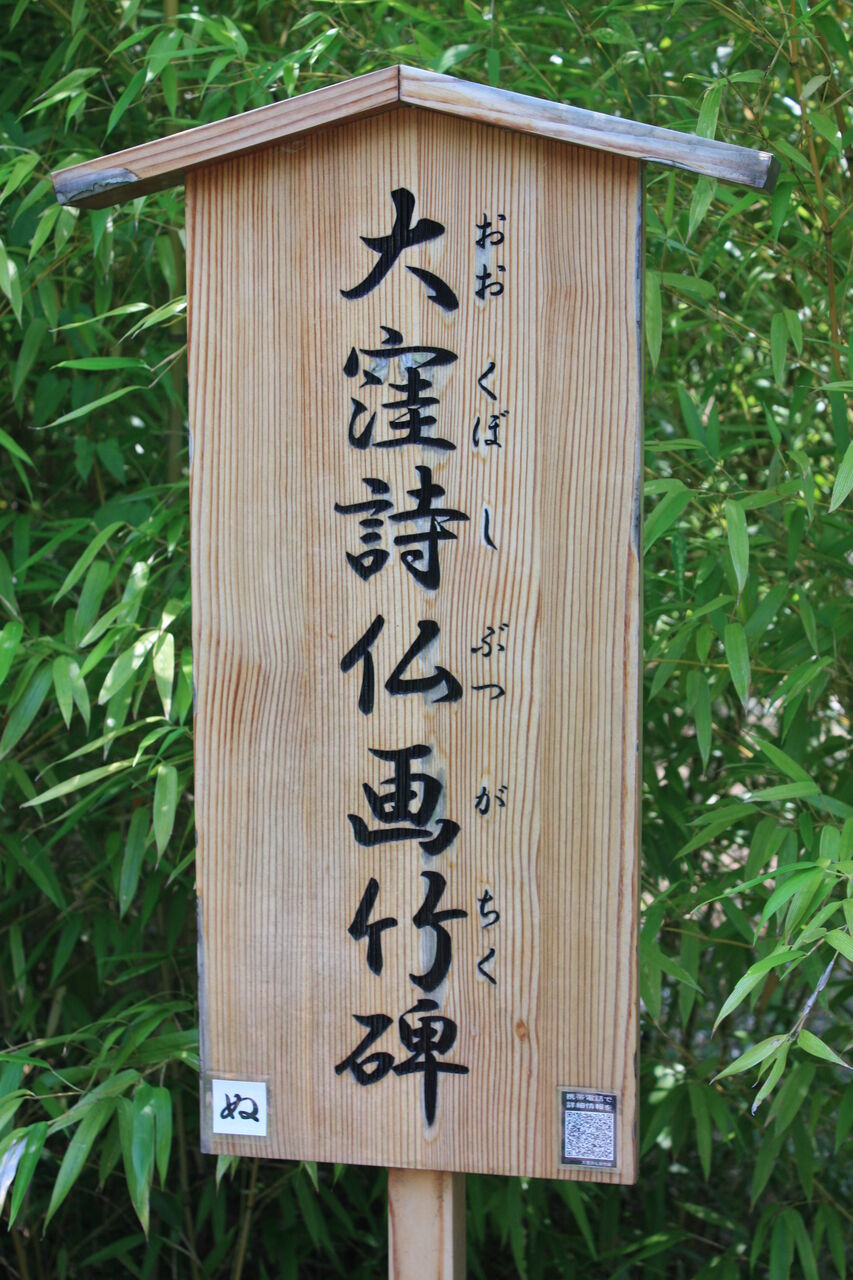 大窪詩仏画竹碑
おおくぼしぶつがちく
ぬ
携帯電話で
詳細情報を